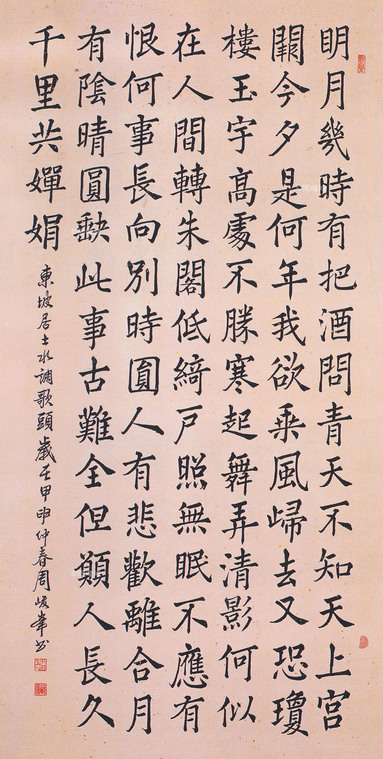 明月幾時有把酒問青天不知天上宮
闕今夕是何年我欲乘風歸去又恐瓊
樓玉宇高處不勝寒起舞弄清影何似
在人間轉朱閣低綺戶照無眠不應有
恨何事長向別時圓人有悲歡離合月
有陰晴圓缺此事古難全但願人長久
千里共嬋娟
東坡居士水調歌頭歲在甲申仲春周峻峯书